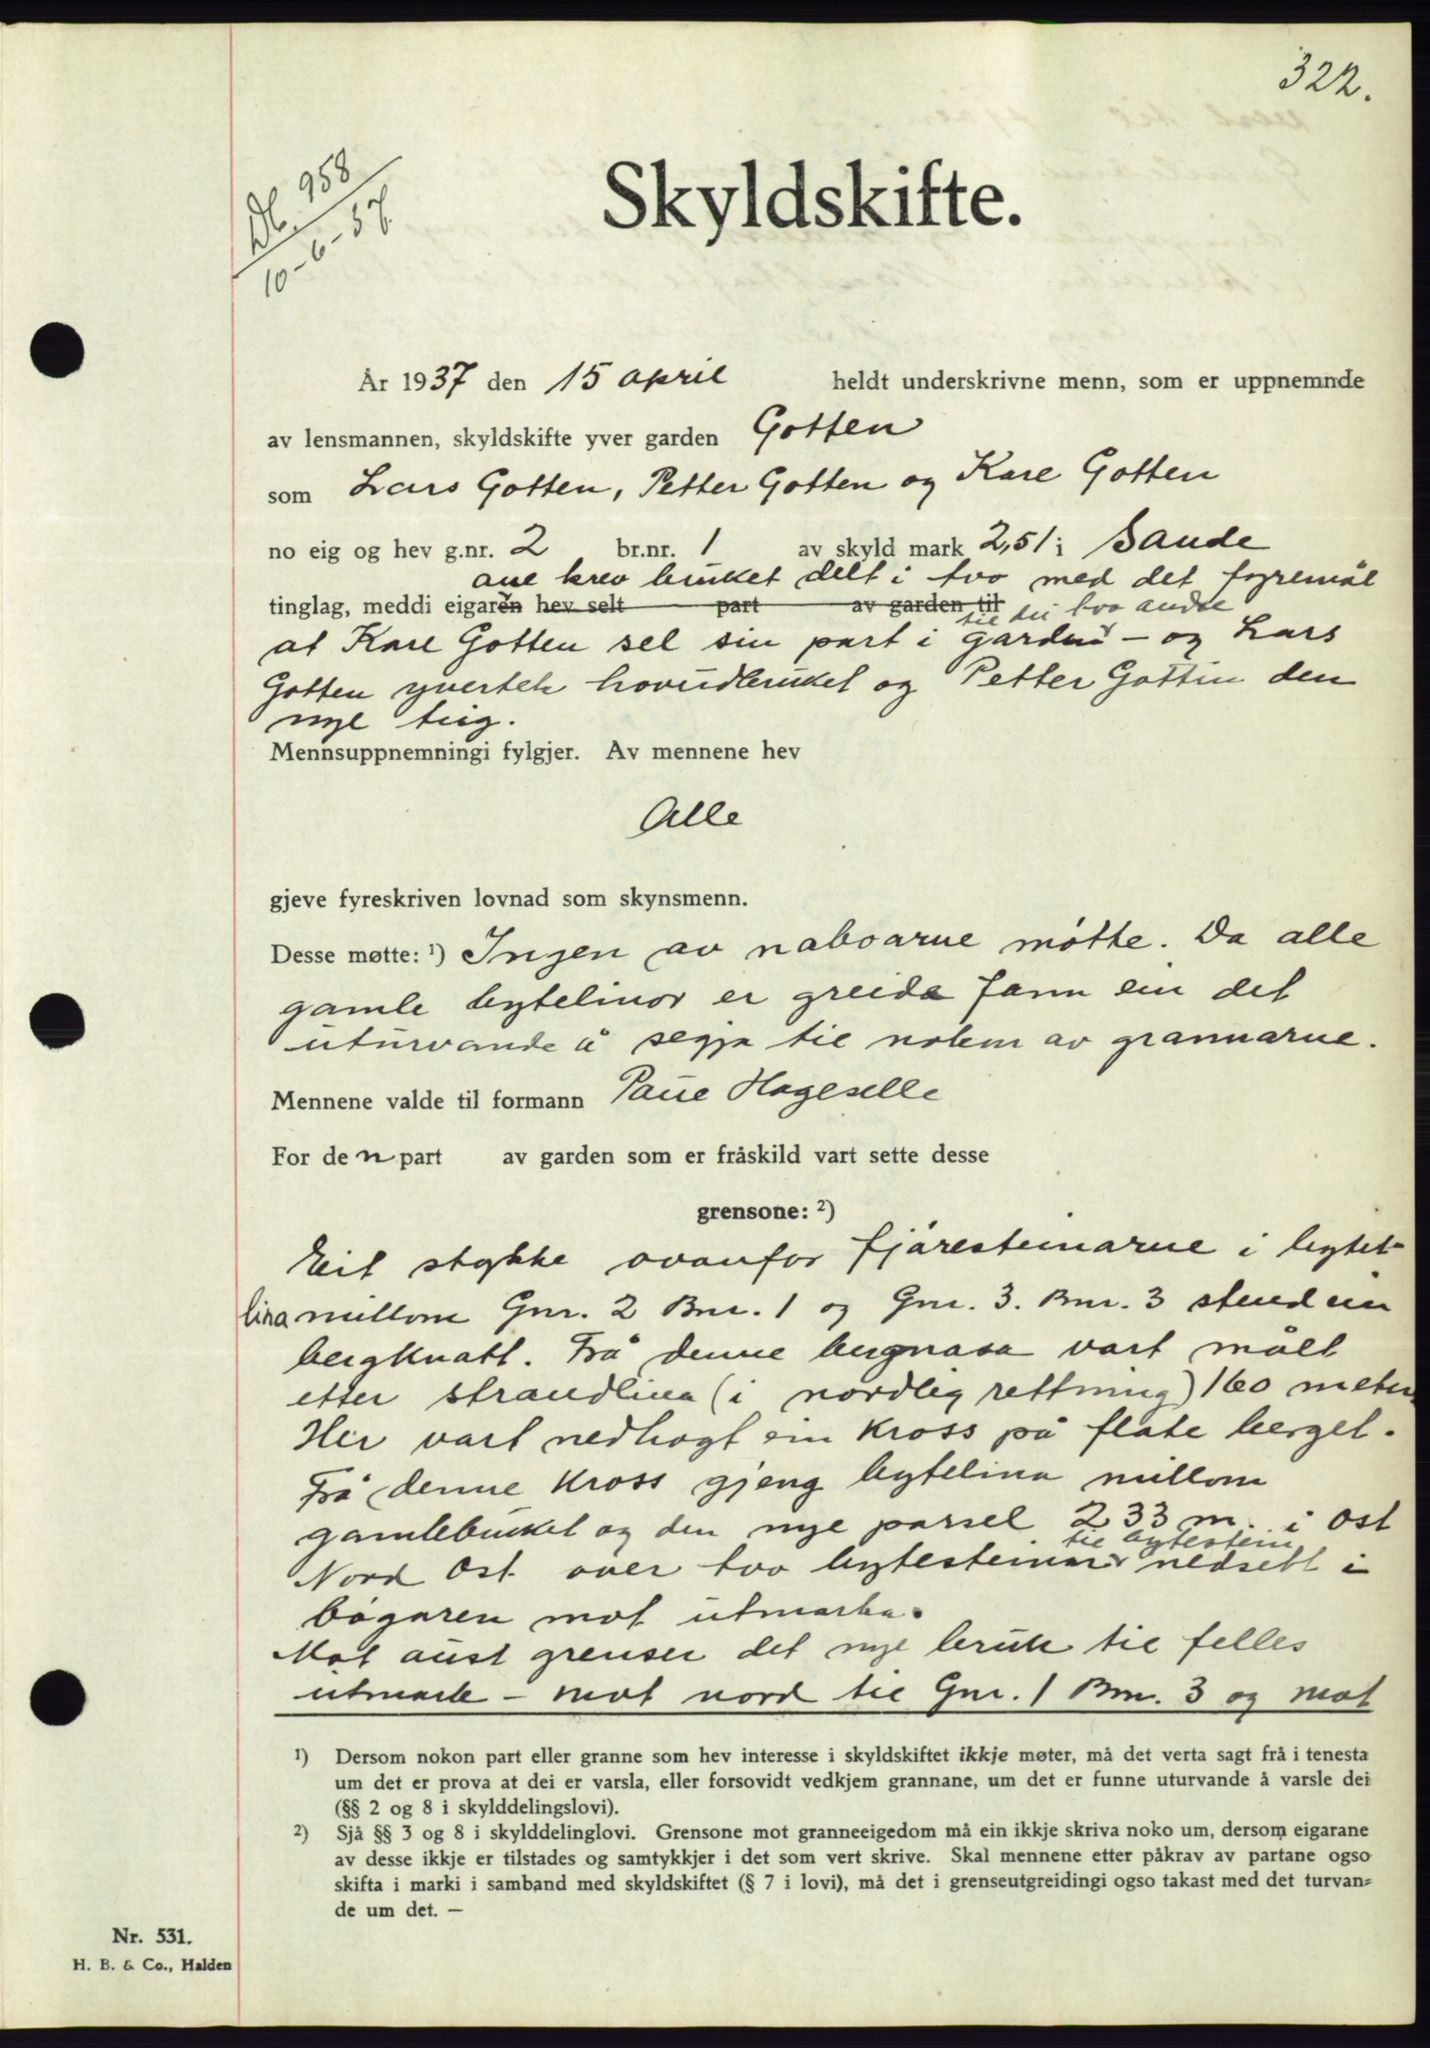 322.
Db. 958
10-6-37.
Skyldskifte.
År 1937 den 15 april heldt underskrivne menn, som er uppnemnde
av lensmannen, skyldskifte yver garden Gotten
som Lars Gotten, Petter Gotten og Kare Gotten
no eig og hev g.nr. 2 br.nr. 1 av skyld mark 2,51 i Sande
ane krev bruket delt i tvo med det fyremål
tinglag, meddi eigaren hev selt part av garden til
til dei tvo andre
at Kare Gotten sel sin part i garden – og Lars
Gotten yvertek hovudbruket og Petter Gotten den
nye teig.
Mennsuppnemningi fylgjer. Av mennene hev
Alle
gjeve fyreskriven lovnad som skynsmenn.
Desse møtte: ¹) Ingen av naboarne møtte. Da alle
gamle bytelinor er greide fann ein det
uturvande å segja til nokem av grannarne.
Mennene valde til formann Paue Hageselle
For den part av garden som er fråskild vart sette desse
grensone: ²)
Eit stykke ovanfor fjåresteinarne i bytet-
lina millom Gnr. 2 Bnr. 1 og Gnr. 3. Bnr. 3 stend ein
bergknatt. Frå denne bergnasa vart målt
etter strandlina (i nordlig rettning) 160 meter
Her vart nedhogt ein kross på flate berget.
Frå denne kross gjeng bytelina millom
gamlebruket og den nye parsel 233 m. i ost
til bytestein
Nord Ost over tvo bytesteinar nedsett i
bøgaren mot utmarka.
Mot aust grenser det nye bruk til felles
utmark – mot nord til Gnr. 1 Bnr. 3 og mot
¹) Dersom nokon part eller granne som hev interesse i skyldskiftet ikkje møter, må det verta sagt frå i tenesta
um det er prova at dei er varsla, eller forsovidt vedkjem grannane, um det er funne uturvande å varsle dei
(§§ 2 og 8 i skylddelingslovi).
²) Sjå §§ 3 og 8 i skylddelinglovi. Grensone mot granneeigedom må ein ikkje skriva noko um, dersom eigarane
av desse ikkje er tilstades og samtykkjer i det som vert skrive. Skal mennene etter påkrav av partane ogso
skifta i marki i samband med skyldskiftet (§ 7 i lovi), må det i grenseutgreidingi ogso takast med det turvan=
de um det. —
Nr. 531.
H. B. & Co., Halden